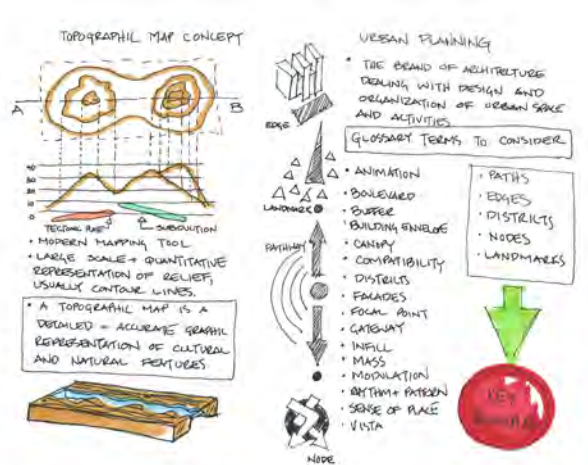 TOPOGRAPHIL MAP CONCEPT
A
B
40
30
20
10
0
TECTONIC PLATE
SUBDUCTION
• MODERN MAPPING TOOL
• LARGE SCALE + QUANTITATIVE
REPRESENTATION OF RELIEF,
USUALLY CONTOUR LINES.
• A TOPOGRAPHIC MAP IS A
DETAILED + ACCURATE GRAPHIC
REPRESENTATION OF CULTURAL
AND NATURAL FEATURES
EDGE
LANDMARK
PATHWAY
NODE
URBAN PLANNING
• THE BRAND OF ARCHITECTURE
DEALING WITH DESIGN AND
ORGANIZATION OF URBAN SPACE
AND ACTIVITIES
GLOSSARY TERMS TO CONSIDER
• ANIMATION
• BOULEVARD
• BUFFER
• BUILDING ENVELOPE
• CANOPY
• COMPATIBILITY
• DISTRICTS
• FACADES
• FOCAL POINT
• GATEWAY
• INFILL
• MASS
• MODULATION
• RHYTHM + PATTERN
• SENSE OF PLACE
• VISTA
• PATHS
• EDGES
• DISTRICTS
• NODES
• LANDMARKS
KEY